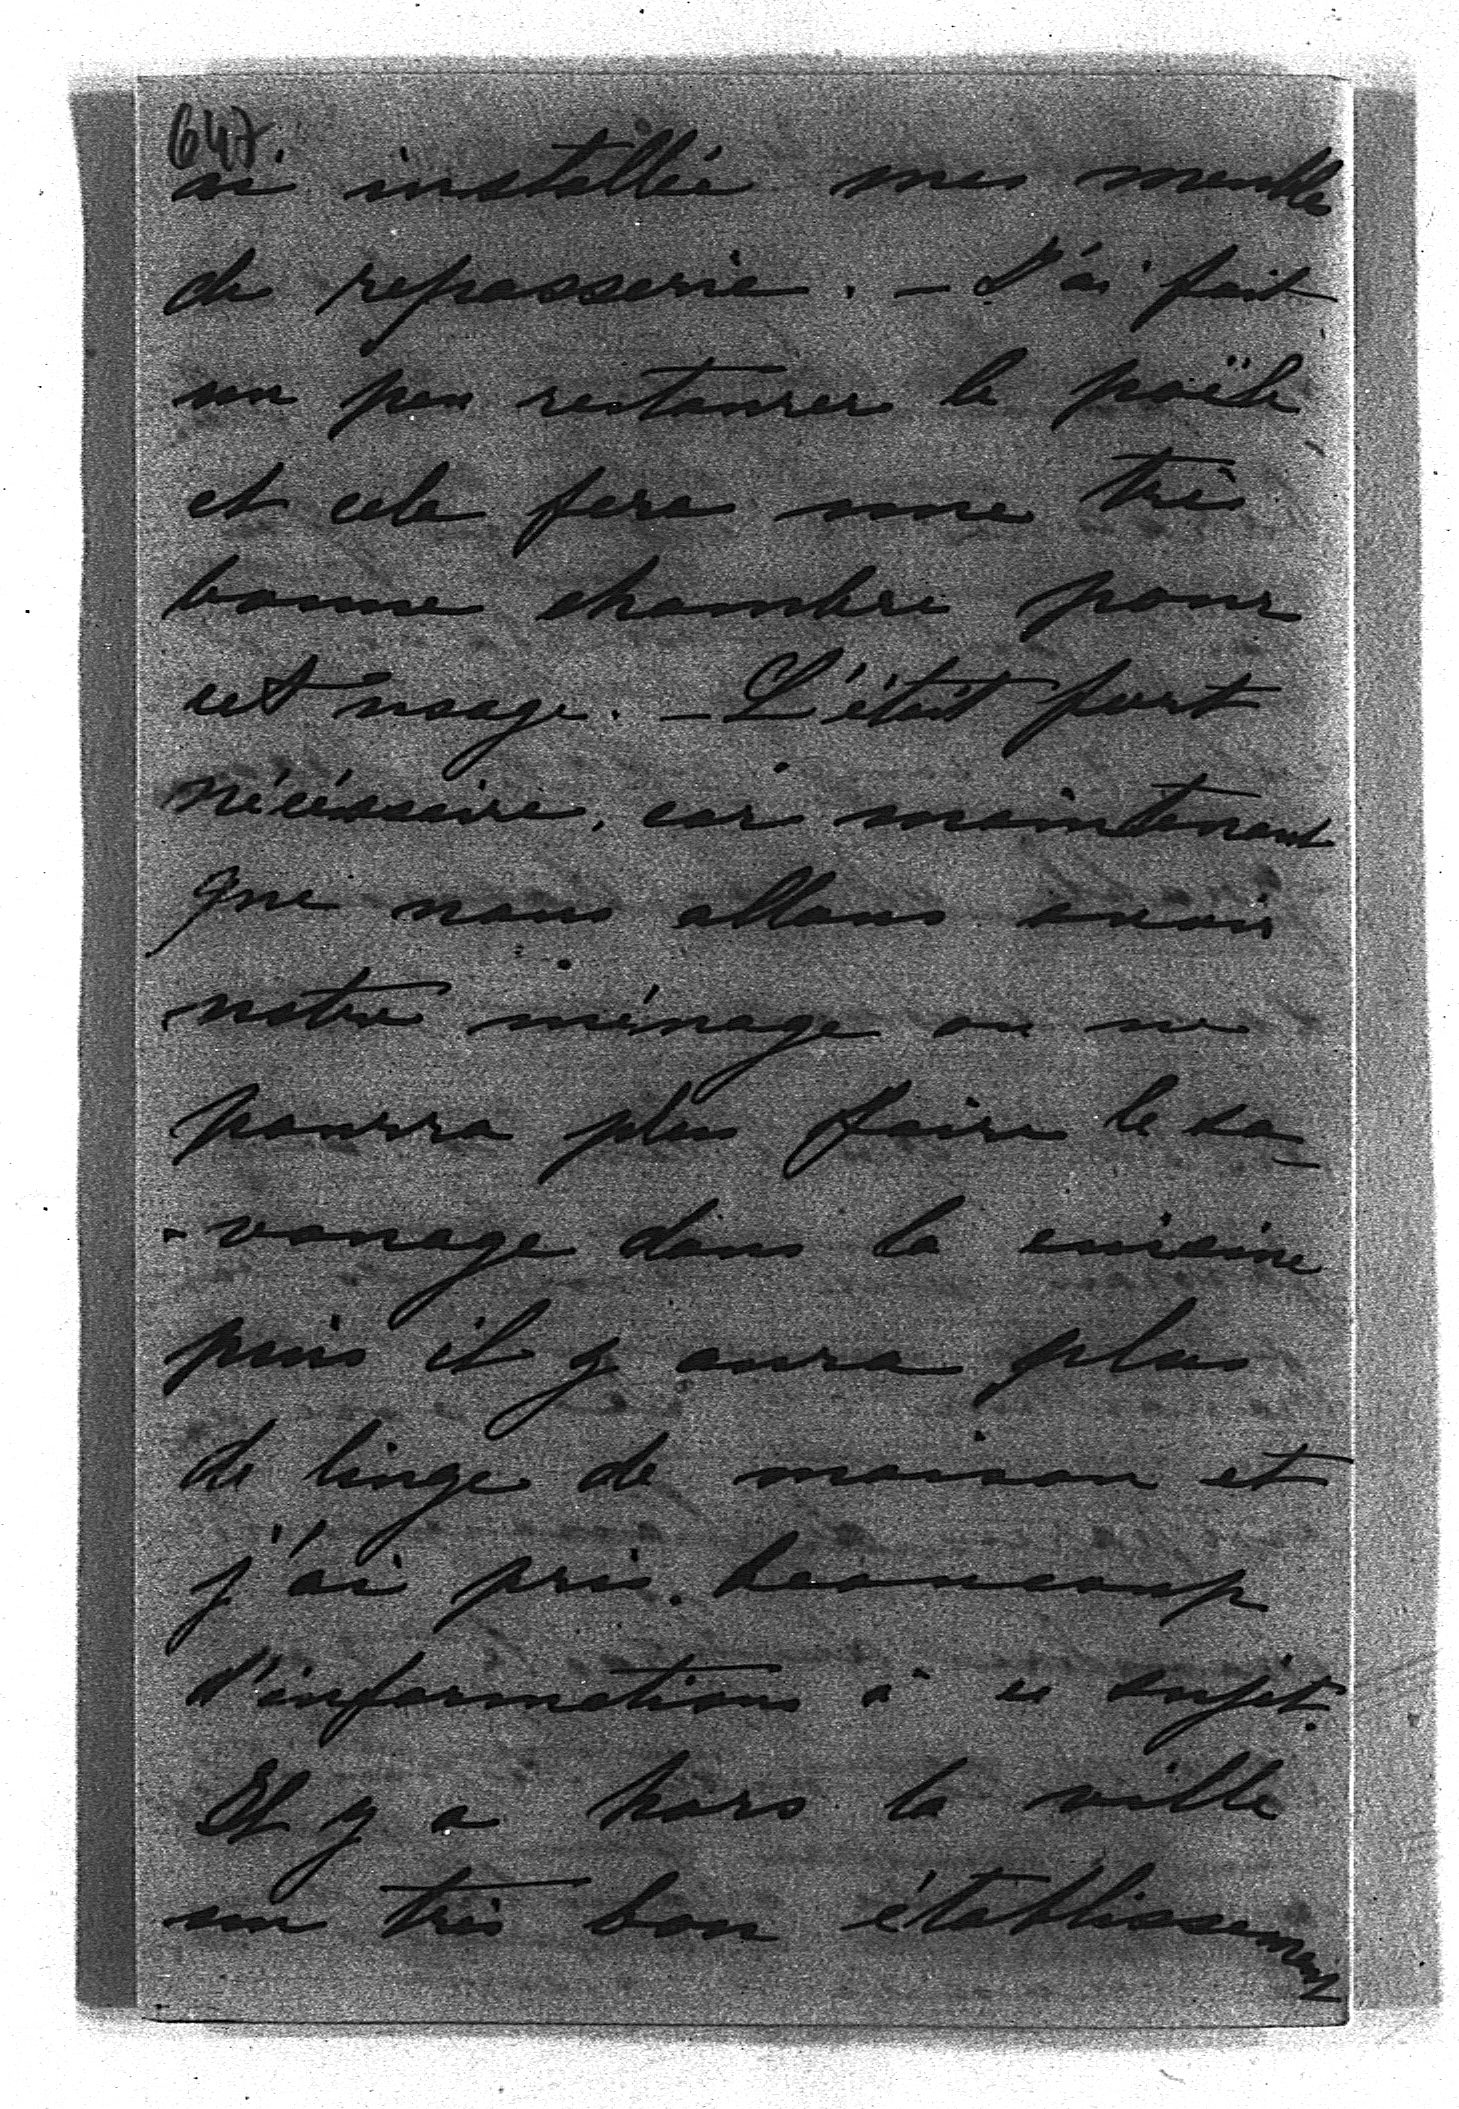 647.
ai installée mes meubles
de repasserie. - J'ai fait
un peu restaurer le poële
et cela fera une très
bonne chambre pour
cet usage. - C'était fort
nécéssaire, car maintenant
que nous allons avoir
notre ménage on ne
pourra plus faire le sa-
-vonage dans la cuisine
puis il y aura plus
de linge de maison et
j'ai pris beaucoup
d'informations à ce sujet.
Il y a hors la ville
un très bon établissement